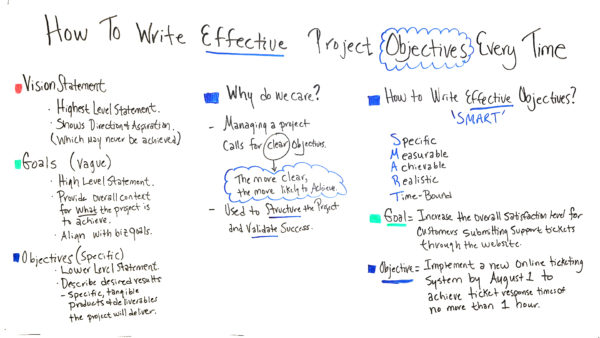 How To Write Effective Project Objectives Every Time
Vision Statement
· Highest Level Statement.
· Shows Direction & Aspiration.
(Which May never be achieved)
Goals (Vague)
· High Level Statement.
· Provide Overall context
for What the project is
to achieve.
· Align with biz goals.
Objectives (Specific)
· Lower Level Statement.
· Describe desired results
- Specific, tangible
products & deliverables
the project will deliver.
Why do we care?
- Managing a project
Calls for clear Objectives.
The more clear,
the more likely to Achieve.
- Used to Structure the Project
and Validate Success.
How to Write Effective Objectives?
'SMART'
Specific
Measurable
Achievable
Realistic
Time-Bound
Goal = Increase the Overall Satisfaction level for
Customers Submitting Support tickets
through the website.
Objective = Implement a new Online ticketing
System by August 1 to
achieve ticket response times of
no more than 1 hour.